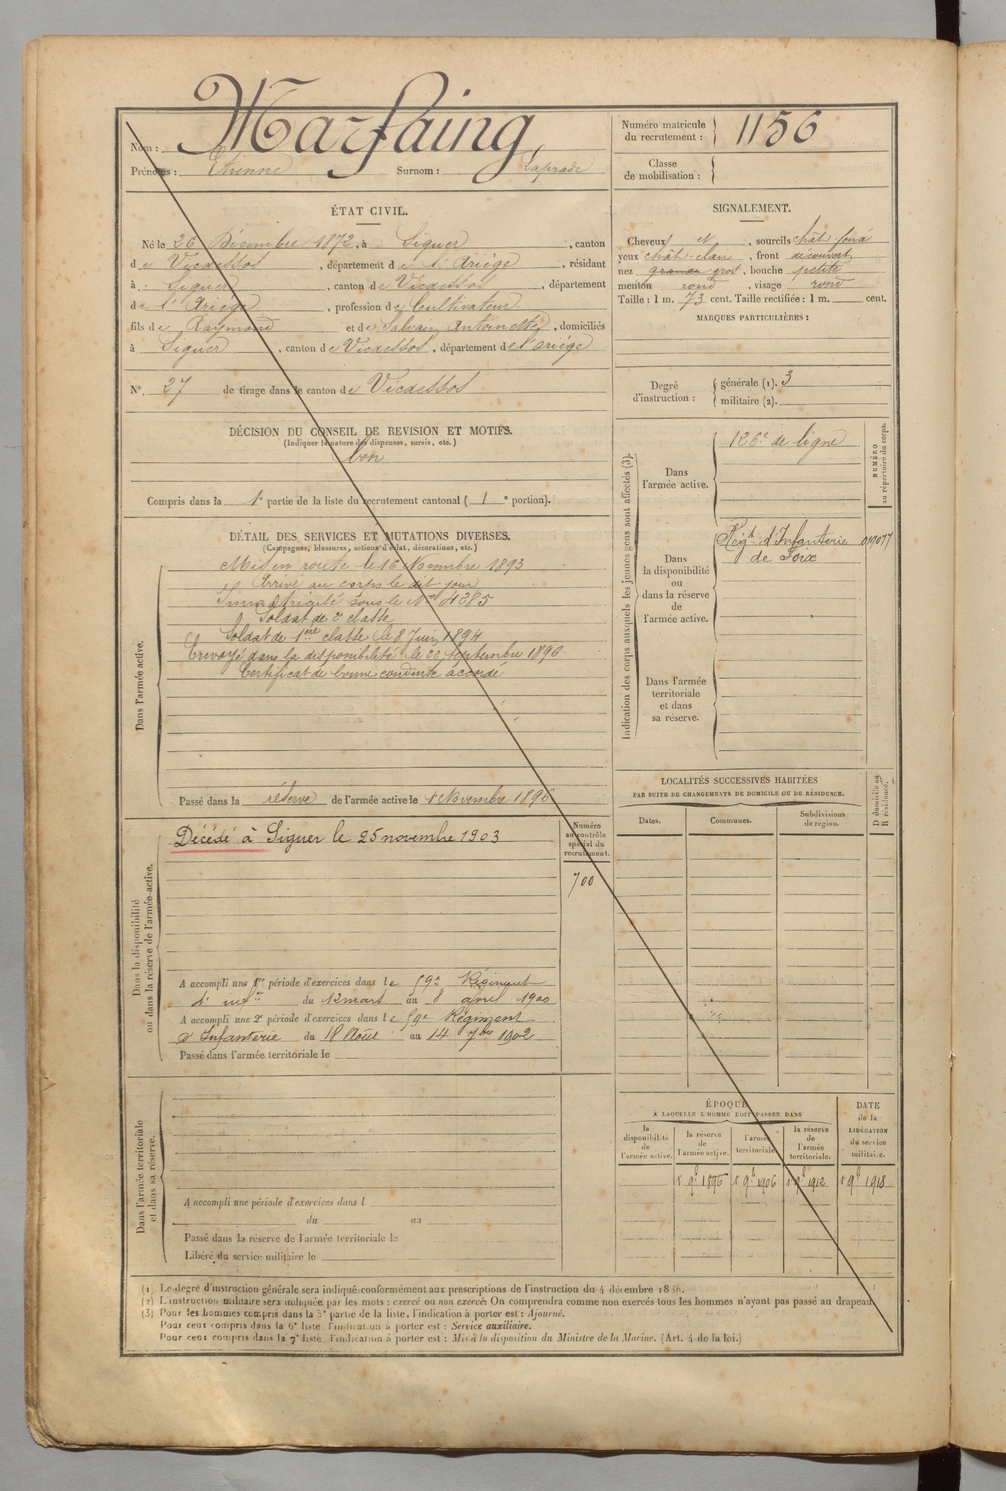 Nom : Marfaing,
Prénoms : Etienne Surnom : Laprade
Numéro matricule du recrutement : 1156
Classe de mobilisation :
ÉTAT CIVIL.
Né le 26 Décembre 1872, à Siguer, canton
de Vicdessos, département de l'Ariège, résidant
à Siguer, canton de Vicdessos, département
de l'Ariège, profession de Cultivateur
fils de Raymond et de Salvain Antoinette, domiciliés
à Siguer, canton de Vicdessos, département de l'ariège
N° 27 de tirage dans le canton de Vicdessos
SIGNALEMENT.
Cheveux et, sourcils chât foncé
yeux chât clair, front découvert
nez grande gros, bouche petite
menton rond, visage rond
Taille : 1 m. 73 cent. Taille rectifiée : 1 m. cent.
MARQUES PARTICULIÈRES :
Degré d'instruction : générale (1). 3
militaire (2).
DÉCISION DU CONSEIL DE REVISION ET MOTIFS.
(Indiquer la nature des dispenses, sursis, etc.)
bon
Compris dans la 1e partie de la liste du recrutement cantonal ( 1 e portion).
DÉTAIL DES SERVICES ET MUTATIONS DIVERSES.
(Campagnes, blessures, actions d'éclat, décorations, etc.)
Dans l'armée active.
Mis en route le 16 Novembre 1893
Arrivé au corps le dit jour
Immatriculé sous le N° 4385
Soldat de 2e classe
Soldat de 1ère classe le 8 Juin 1894
Envoyé dans la disponibilité le 22 Septembre 1896
Certificat de bonne conduite accordé
Passé dans la réserve de l'armée active le 1 Novembre 1896
Indication des corps auxquels les jeunes gens sont affectés (3).
NUMÉRO au répertoire du corps.
Dans l'armée active.
126e de ligne
Dans la disponibilité ou dans la réserve de l'armée active.
Regt d'Infanterie 019077
de Foix
Dans l'armée territoriale et dans sa réserve.
LOCALITÉS SUCCESSIVES HABITÉES
PAR SUITE DE CHANGEMENTS DE DOMICILE OU DE RÉSIDENCE.
Dates. Communes. Subdivisions de région.
D domicile ou R résidence.
Dans la disponibilité ou dans la réserve de l'armée active.
Décédé à Siguer le 25 novembre 1903
Numéro au contrôle spécial du recrutement.
700
A accompli une 1re période d'exercices dans le 59e Régiment
d' infie du 12 mars au 8 avril 1900
A accompli une 2e période d'exercices dans le 59e Régiment
d'Infanterie du 18 Août au 14 7bre 1902
Passé dans l'armée territoriale le
Dans l'armée territoriale et dans sa réserve.
A accompli une période d'exercices dans l
du au
Passé dans la réserve de l'armée territoriale le
Libéré du service militaire le
ÉPOQUE
À LAQUELLE L'HOMME DOIT PASSER DANS
la disponibilité de l'armée active.
la réserve de l'armée active.
l'armée territoriale.
la réserve de l'armée territoriale.
DATE de la LIBÉRATION du service militaire.
1 9b 1896 1 9b 1906 1 9b 1912 1 9b 1918
(1) Le degré d'instruction générale sera indiqué conformément aux prescriptions de l'instruction du 4 décembre 18
(2) L'instruction militaire sera indiquée par les mots : exercé ou non exercé. On comprendra comme non exercés tous les hommes n'ayant pas passé au drapeau.
(3) Pour les hommes compris dans la 5e partie de la liste, l'indication à porter est : Ajourné.
Pour ceux compris dans la 6e liste, l'indication à porter est : Service auxiliaire.
Pour ceux compris dans la 7e liste, l'indication à porter est : Mis à la disposition du Ministre de la Marine. (Art. 4 de la loi.)